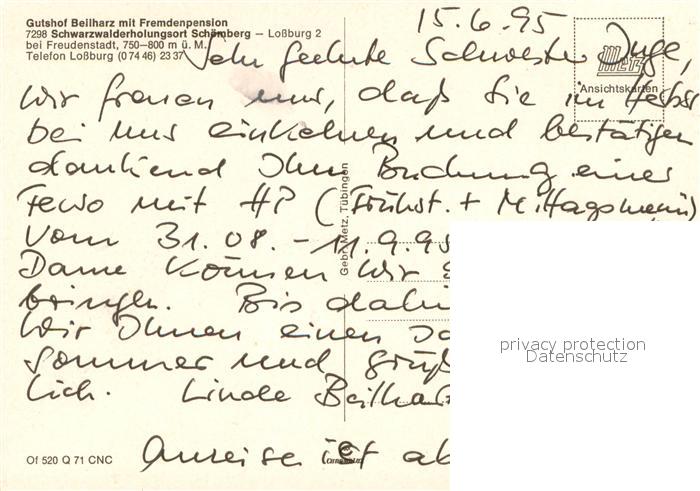 Gutshof Beilharz mit Fremdenpension
7298 Schwarzwalderholungsort Schömberg – Loßburg 2
bei Freudenstadt, 750–800 m ü. M.
Telefon Loßburg (0 74 46) 23 37
METZ
Ansichtskarten
15.6.95
Sehr geehrte Schwester Inge,
wir freuen uns, daß Sie im Herbst
bei uns einkehren und bestätigen
dankend Ihre Buchung einer
Fewo mit HP (Frühst. + Mittagsmenü)
vom 31.08. – 11.9.95
Dame können wir
bringen. Bis dahin
wir Ihnen einen
Sommer und
lich. Linde Beilharz
Anreise ist ab
Gebr. Metz, Tübingen
Of 520 Q 71 CNC
privacy protection
Datenschutz